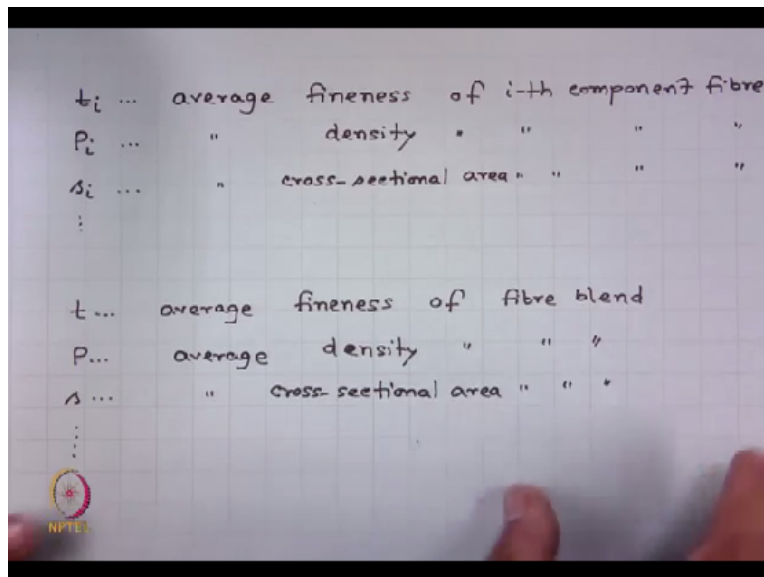 t_i ... average fineness of i-th component fibre
ρ_i ... " density " " " "
s_i ... " cross-sectional area " " " "
⋮
t ... average fineness of fibre blend
ρ ... average density " " "
s ... " cross-sectional area " " "
⋮
NPTEL